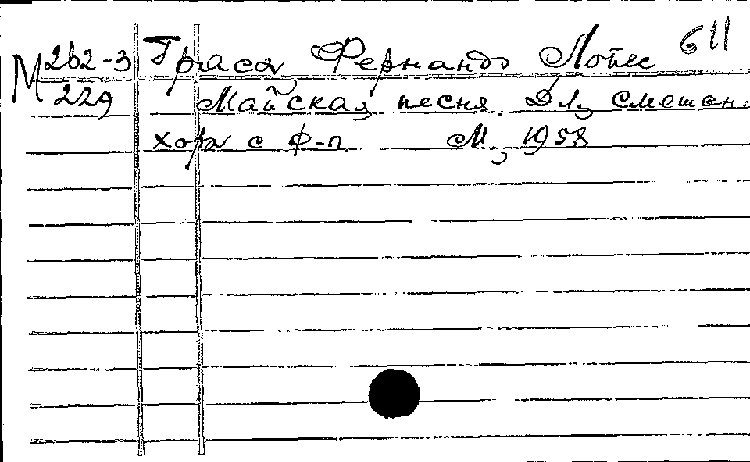 М 262-3 Граса, Фернандо Лопес 611
229 Майская песня. Для смешан.
хора с ф-п М., 1958